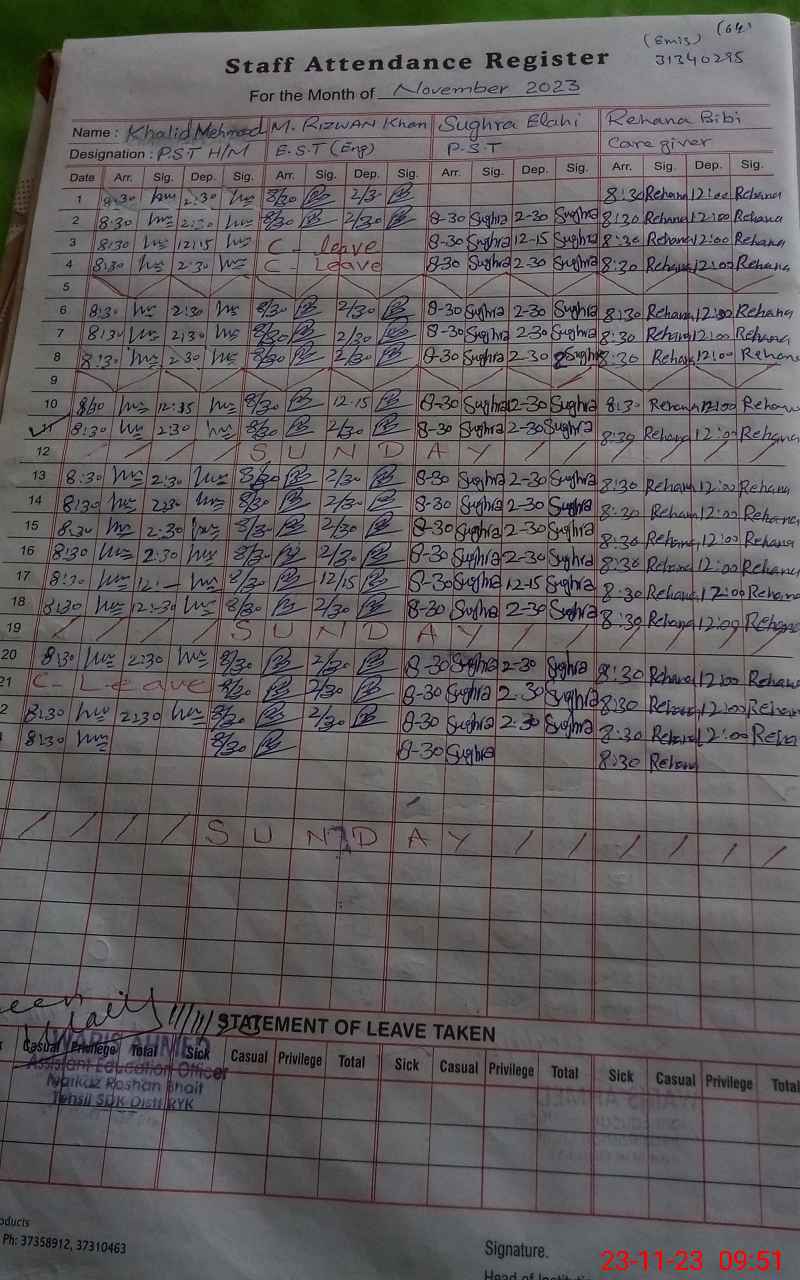 (Emis) (64)
31340295
Staff Attendance Register
For the Month of November 2023
Name : Khalid Mehmood M. RIZWAN Khan Sughra Elahi Rehana Bibi
Designation : P.S.T H/M E.S.T (Eng) P.S.T Care giver
Date Arr. Sig. Dep. Sig. Arr. Sig. Dep. Sig. Arr. Sig. Dep. Sig. Arr. Sig. Dep. Sig.
1 8:30 2:30 8/30 2/30 8:30 Rehana 12:00 Rehana
2 8:30 2:30 8/30 2/30 8-30 Sughra 2-30 Sughra 8:30 Rehana 12:00 Rehana
3 8:30 12:15 C - leave 8-30 Sughra 12-15 Sughra 8:30 Rehana 12:00 Rehana
4 8:30 2:30 C - Leave 8-30 Sughra 2-30 Sughra 8:30 Rehana 12:00 Rehana
5
6 8:30 2:30 8/30 2/30 8-30 Sughra 2-30 Sughra 8:30 Rehana 12:00 Rehana
7 8:30 2:30 8/30 2/30 8-30 Sughra 2-30 Sughra 8:30 Rehana 12:00 Rehana
8 8:30 2:30 8/30 2/30 8-30 Sughra 2-30 Sughra 8:30 Rehana 12:00 Rehana
9
10 8:30 8/30 12-15 8-30 Sughra 12-30 Sughra 8:30 Rehana 12:00 Rehana
11 8:30 2:30 8/30 2/30 8-30 Sughra 2-30 Sughra 8:30 Rehana 12:00 Rehana
12 / / / / S U N D A Y / / / / / /
13 8:30 2:30 8/30 2/30 8-30 Sughra 2-30 Sughra 8:30 Rehana 12:00 Rehana
14 8:30 2:30 8/30 2/30 8-30 Sughra 2-30 Sughra 8:30 Rehana 12:00 Rehana
15 8:30 2:30 8/30 2/30 8-30 Sughra 2-30 Sughra 8:30 Rehana 12:00 Rehana
16 8:30 2:30 8/30 2/30 8-30 Sughra 2-30 Sughra 8:30 Rehana 12:00 Rehana
17 8:30 8/30 12/15 8-30 Sughra 12-15 Sughra 8:30 Rehana 12:00 Rehana
18 8:30 12:30 8/30 2/30 8-30 Sughra 2-30 Sughra 8:30 Rehana 12:00 Rehana
19 / / / / S U N D A Y / / / / / /
20 8:30 2:30 8/30 2/30 8-30 Sughra 2-30 Sughra 8:30 Rehana 12:00 Rehana
21 C - Leave 8/30 2/30 8-30 Sughra 2-30 Sughra 8:30 Rehana 12:00 Rehana
2 8:30 2:30 8/30 2/30 8-30 Sughra 2-30 Sughra 8:30 Rehana 12:00 Reha
8:30 8/30 8-30 Sughra 8:30 Rehana
/ / / / S U N D A Y / / / / / /
STATEMENT OF LEAVE TAKEN
Casual Privilege Total Sick Casual Privilege Total Sick Casual Privilege Total Sick Casual Privilege Total
WARIS AHMED
Assistant Education Officer
Markaz Roshan Bhait
Tehsil SDK Distt RYK
oducts
Ph: 37358912, 37310463
Signature.
23-11-23 09:51